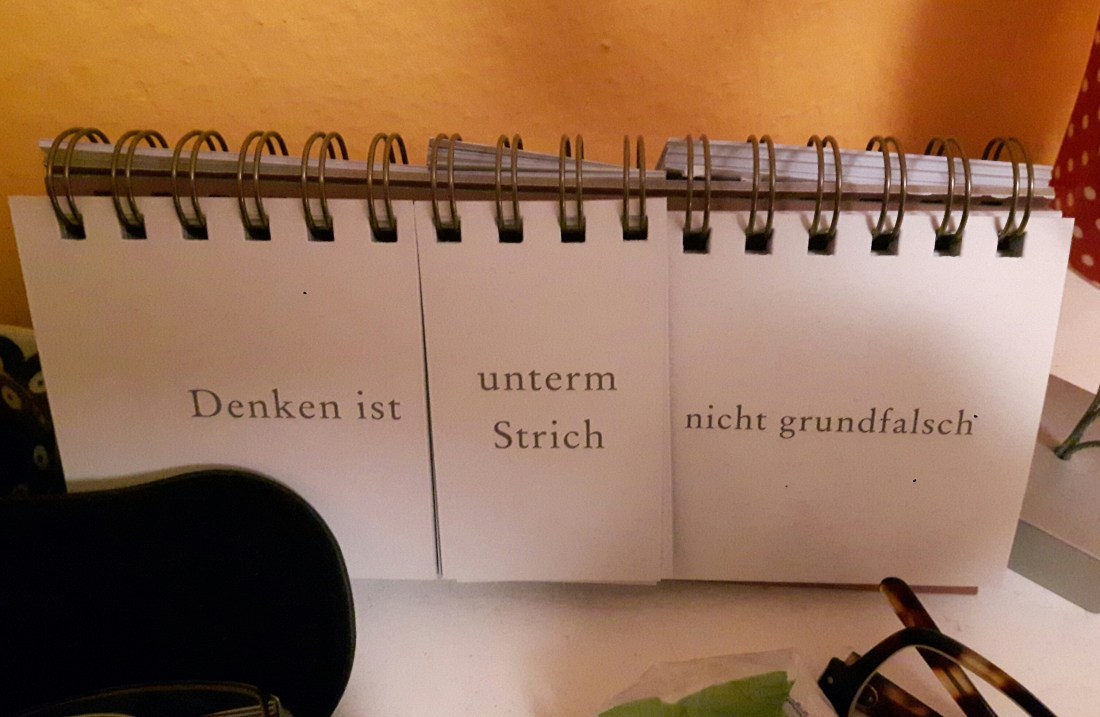 Denken ist
unterm
Strich
nicht grundfalsch